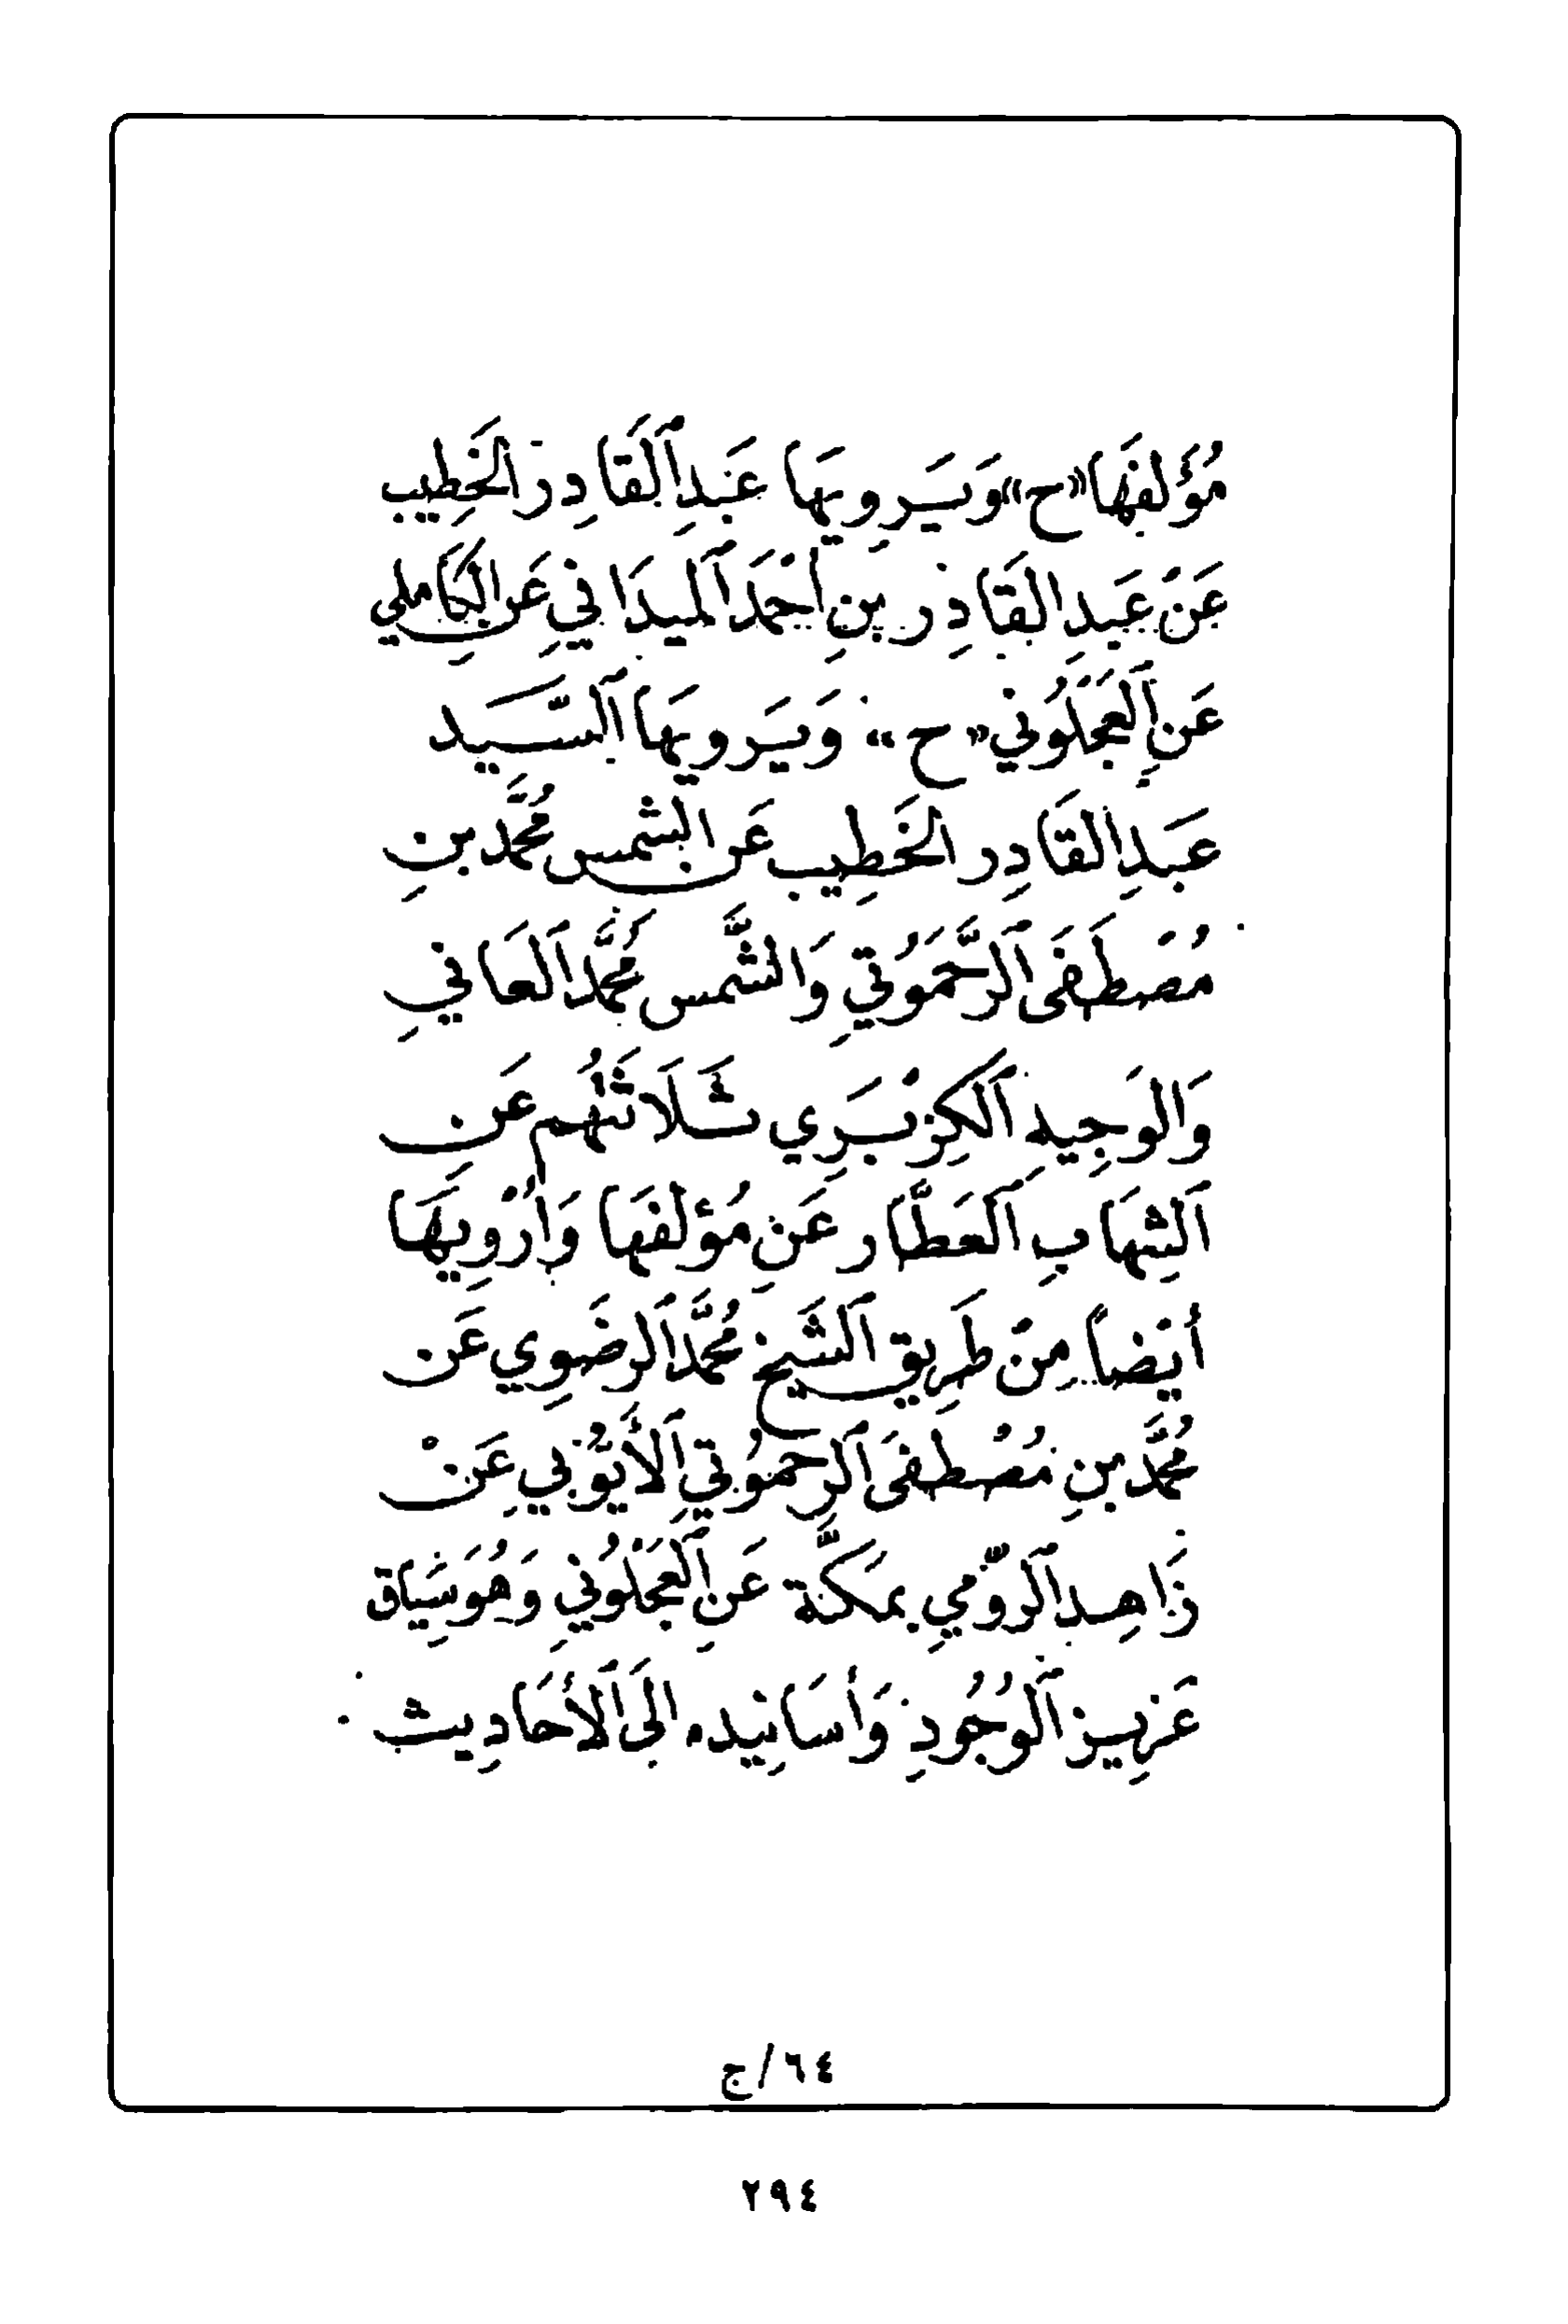 مُؤَلفَهَا «ح» وَيَروِيهَا عَبدِ اَلقَادِر الخَطِيب
عَنْ عَبدِ القَادِر بنِ أحَمَد اَلميدَاني عَن الكَاملي
عَن اَلعَجَلُوني «ح» وَيَروِيهَا اَلسَّيد
عَبدِ القَادِر الخَطِيب عَن الشمس مُحمَّد بنِ
مُصطَفَى اَلرَّحَمُوتي وَالشَّمس مُحمَّد اَلعَاني
وَالوَجِيه اَلكِزبَرِي ثَلَاثَتُهُم عَن
اَلشِهَابِ اَلعَطَّار عَن مُؤلفهَا وَأروِيهَا
أيضاً مِنْ طَرِيق اَلشَيخ مُحمَّد اَلرضَوِي عَن
مُحمَّد بنِ مُصْطَفَى اَلرحمُوتي اَلأَيُّوبي عَنْ
زَاهِد اَلرّومي بمَكَّة عَن اَلعَجَلُوني وَهُوَ سِيَاق
عَزِيز اَلوُجُودِ وَأسَانِيده إلَى اَلأحَادِيث :
٦٤/ج
٢٩٤